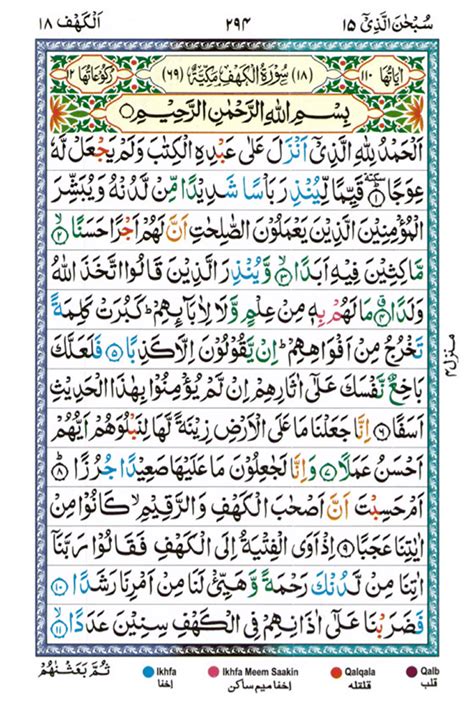 سُبْحٰنَ الَّذِیْۤ ۱۵ ۲۹۴ اَلْكَهْف ۱۸
اٰیَاتُهَا ۱۱۰ (۱۸) سُوْرَةُ الْكَهْفِ مَكِّیَّةٌ (۶۹) رُكُوْعَاتُهَا ۱۲
بِسْمِ اللّٰهِ الرَّحْمٰنِ الرَّحِیْمِ
اَلْحَمْدُ لِلّٰهِ الَّذِیْۤ اَنْزَلَ عَلٰى عَبْدِهِ الْكِتٰبَ وَلَمْ یَجْعَلْ لَّهٗ
عِوَجًا ۱ سكتة قَیِّمًا لِّیُنْذِرَ بَاْسًا شَدِیْدًا مِّنْ لَّدُنْهُ وَیُبَشِّرَ
الْمُؤْمِنِیْنَ الَّذِیْنَ یَعْمَلُوْنَ الصّٰلِحٰتِ اَنَّ لَهُمْ اَجْرًا حَسَنًا ۲
مَّاكِثِیْنَ فِیْهِ اَبَدًا ۳ وَّیُنْذِرَ الَّذِیْنَ قَالُوا اتَّخَذَ اللّٰهُ
وَلَدًا ۴ مَا لَهُمْ بِهٖ مِنْ عِلْمٍ وَّلَا لِاٰبَآىِٕهِمْ ؕ كَبُرَتْ كَلِمَةً
تَخْرُجُ مِنْ اَفْوَاهِهِمْ ؕ اِنْ یَّقُوْلُوْنَ اِلَّا كَذِبًا ۵ فَلَعَلَّكَ
بَاخِعٌ نَّفْسَكَ عَلٰۤى اٰثَارِهِمْ اِنْ لَّمْ یُؤْمِنُوْا بِهٰذَا الْحَدِیْثِ
اَسَفًا ۶ اِنَّا جَعَلْنَا مَا عَلَى الْاَرْضِ زِیْنَةً لَّهَا لِنَبْلُوَهُمْ اَیُّهُمْ
اَحْسَنُ عَمَلًا ۷ وَاِنَّا لَجٰعِلُوْنَ مَا عَلَیْهَا صَعِیْدًا جُرُزًا ۸
اَمْ حَسِبْتَ اَنَّ اَصْحٰبَ الْكَهْفِ وَالرَّقِیْمِ ۙ كَانُوْا مِنْ
اٰیٰتِنَا عَجَبًا ۹ اِذْ اَوَى الْفِتْیَةُ اِلَى الْكَهْفِ فَقَالُوْا رَبَّنَاۤ
اٰتِنَا مِنْ لَّدُنْكَ رَحْمَةً وَّهَیِّئْ لَنَا مِنْ اَمْرِنَا رَشَدًا ۱۰
فَضَرَبْنَا عَلٰۤى اٰذَانِهِمْ فِی الْكَهْفِ سِنِیْنَ عَدَدًا ۱۱
منزل ۴
ثُمَّ بَعَثْنٰهُمْ
Ikhfa Ikhfa Meem Saakin Qalqala Qalb
اخفا اخفا میم ساکن قلقلہ قلب